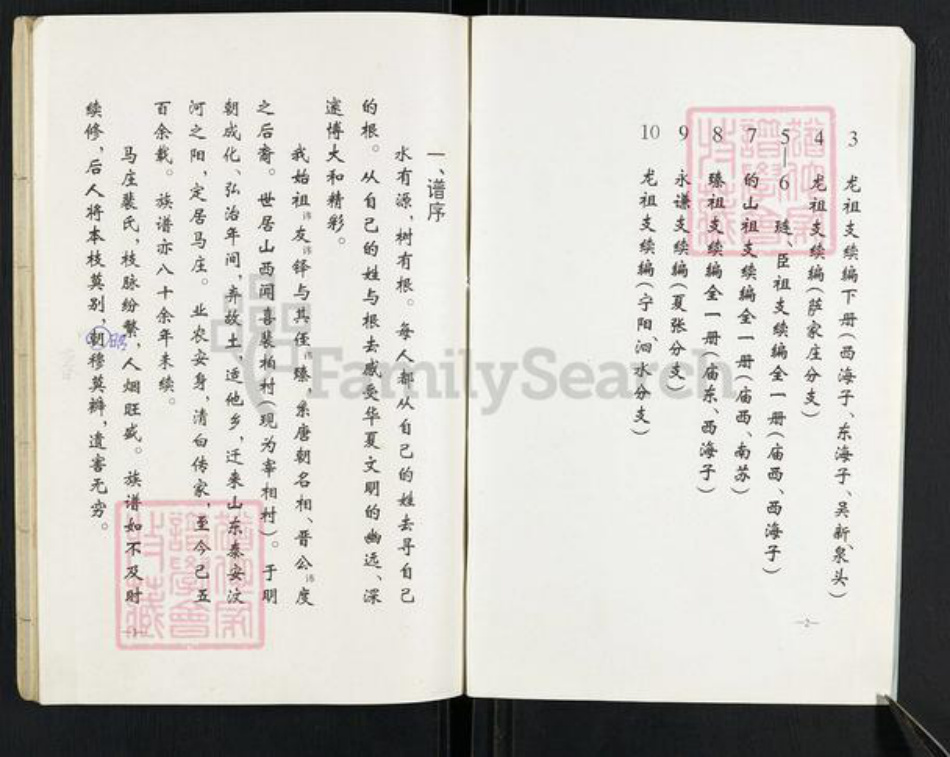 3 龙祖支续编下册(西海子、东海子、吴新、泉头)
4 龙祖支续编(萨家庄分支)
5—6 琏、臣祖支续编全一册(庙西、西海子)
7 的山祖支续编全一册(庙西、南苏)
8 臻祖支续编全一册(庙东、西海子)
9 永谦支续编(夏张分支)
10 龙祖支续编(宁阳、泗水分支)
—2—
一、谱序
水有源,树有根。每人都从自己的姓去寻自己
的根。从自己的姓与根去感受华夏文明的幽远、深
邃博大和精彩。
我始祖讳友讳铎与其侄讳臻,系唐朝名相、晋公讳度
之后裔。世居山西闻喜裴柏村(现为宰相村)。于明
朝成化、弘治年间,弃故土,适他乡,迁来山东泰安汶
河之阳,定居马庄。业农安身,清白传家,至今已五
百余载。族谱亦八十余年未续。
马庄裴氏,枝脉纷繁,人烟旺盛。族谱如不及时
续修,后人将本枝莫别,朝穆莫辨,遗害无穷。
昭
—3—
FamilySearch